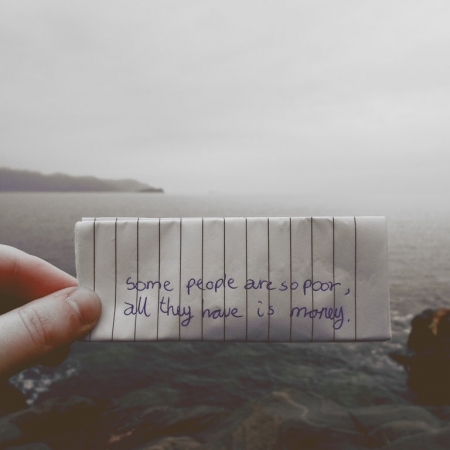 some people are so poor,
all they have is money.